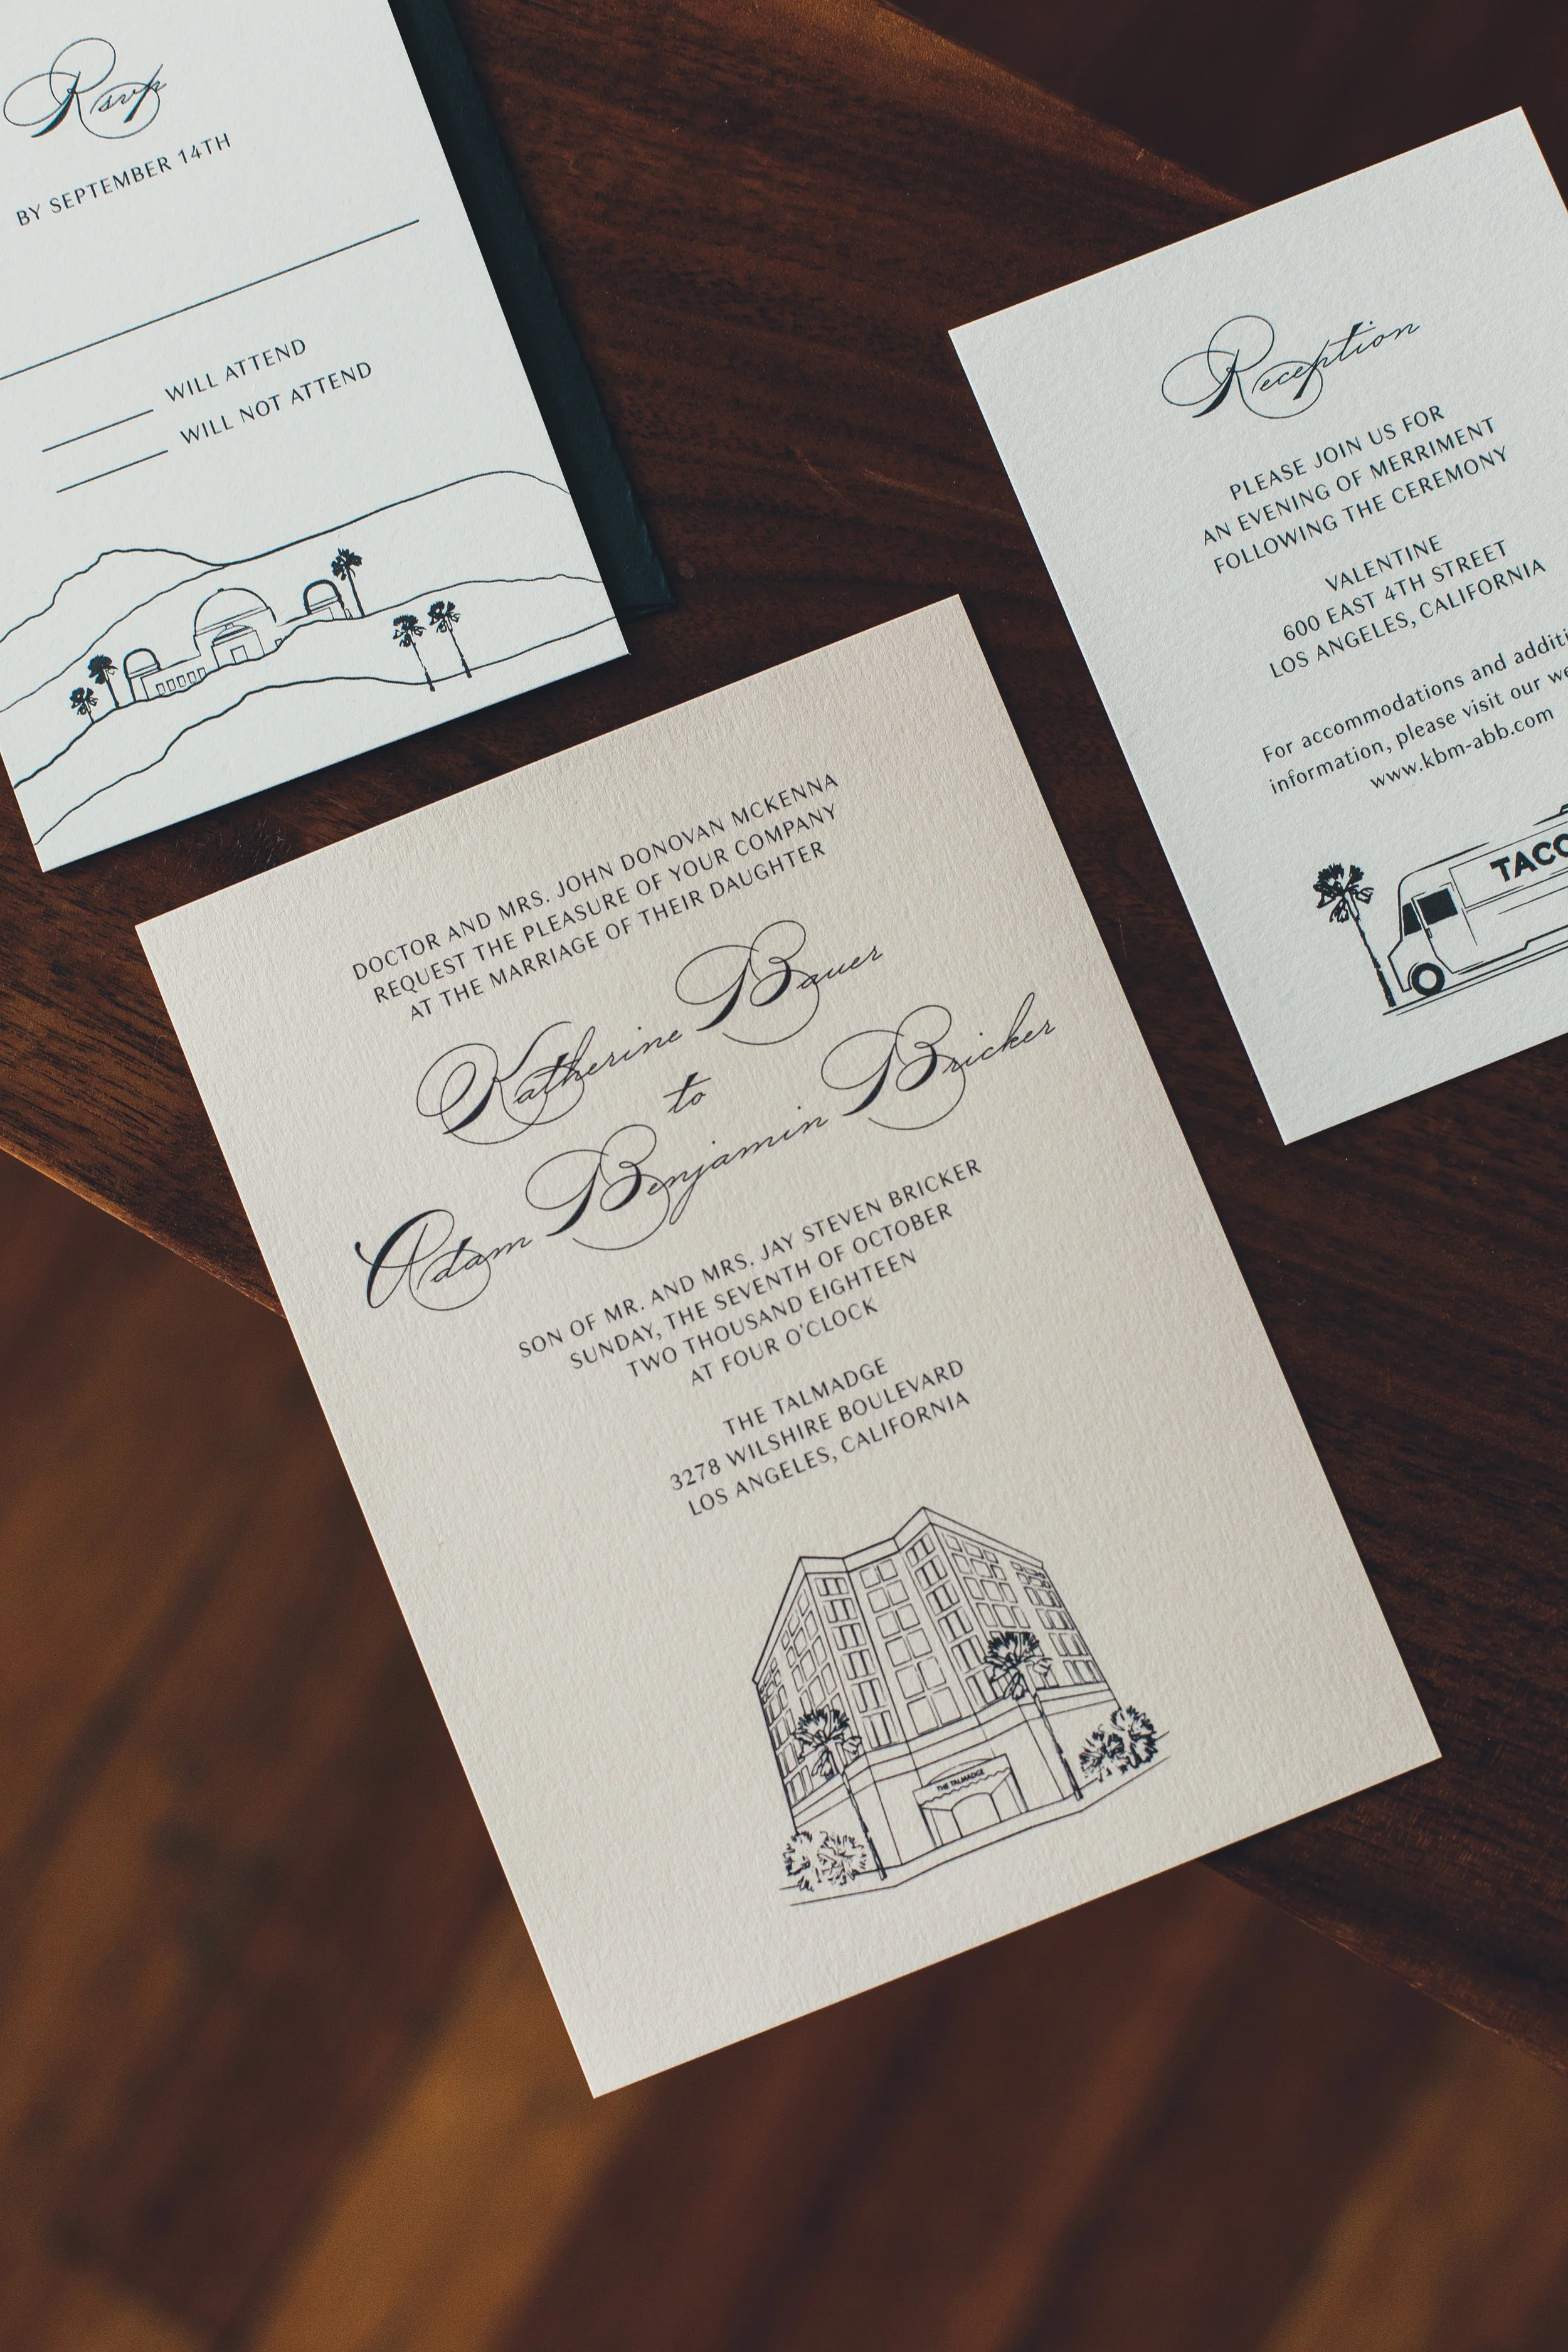 Rsvp
BY SEPTEMBER 14TH
WILL ATTEND
WILL NOT ATTEND
Reception
PLEASE JOIN US FOR
AN EVENING OF MERRIMENT
FOLLOWING THE CEREMONY
VALENTINE
600 EAST 4TH STREET
LOS ANGELES, CALIFORNIA
For accommodations and
information, please visit our
www.kbm-abb.com
DOCTOR AND MRS. JOHN DONOVAN MCKENNA
REQUEST THE PLEASURE OF YOUR COMPANY
AT THE MARRIAGE OF THEIR DAUGHTER
Katherine Bauer
to
Adam Benjamin Bricker
SON OF MR. AND MRS. JAY STEVEN BRICKER
SUNDAY, THE SEVENTH OF OCTOBER
TWO THOUSAND EIGHTEEN
AT FOUR O'CLOCK
THE TALMADGE
3278 WILSHIRE BOULEVARD
LOS ANGELES, CALIFORNIA
THE TALMADGE